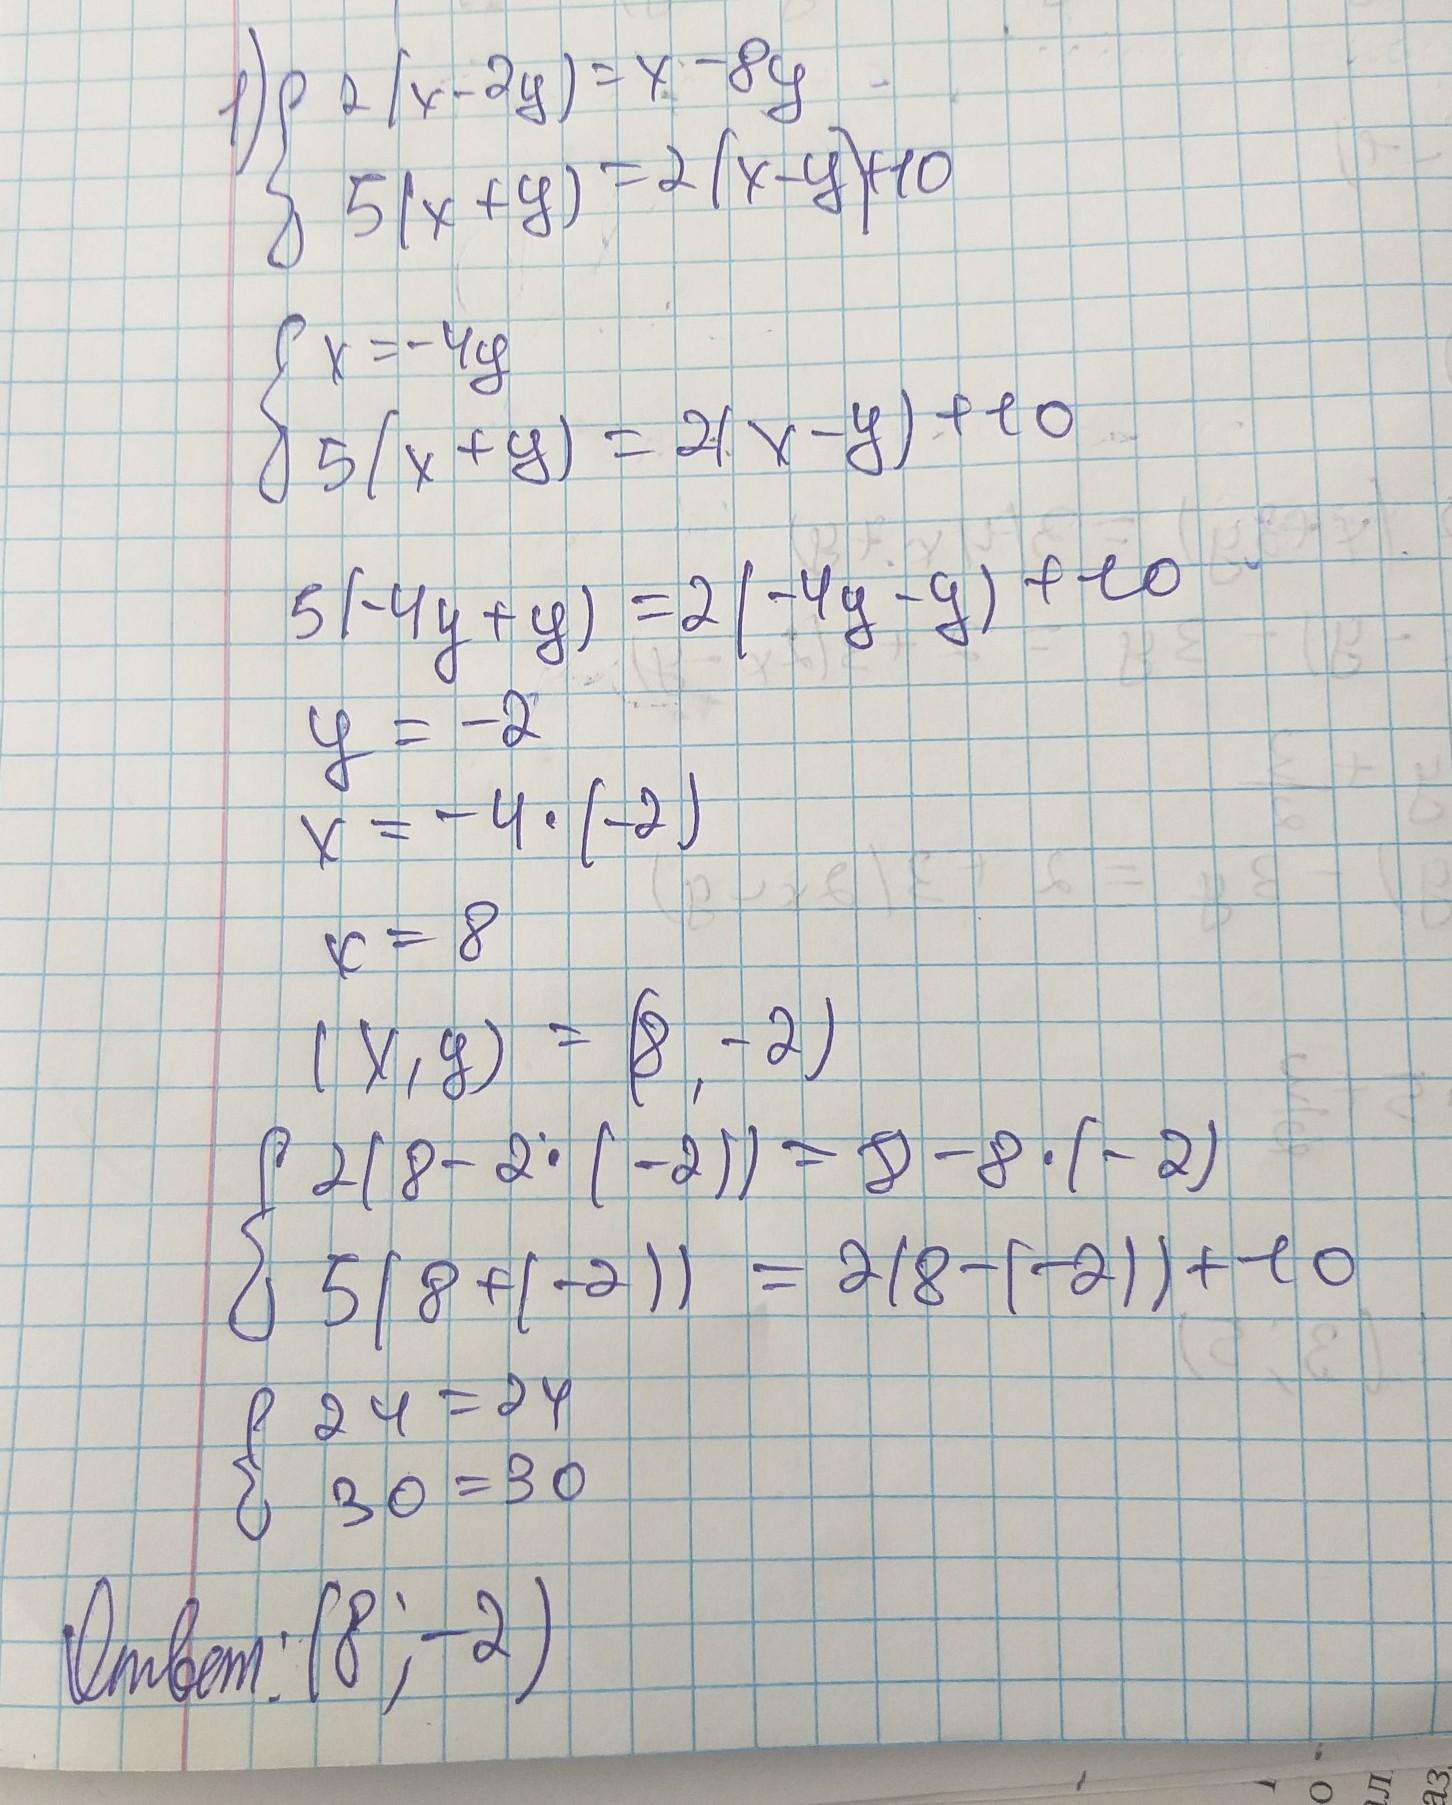 1) { 2(x-2y)=x-8y
5(x+y)=2(x-y)+10
{ x=-4y
5(x+y)=2(x-y)+10
5(-4y+y)=2(-4y-y)+10
y=-2
x=-4·(-2)
x=8
(x,y)=(8,-2)
{ 2(8-2·(-2))=8-8·(-2)
5(8+(-2))=2(8-(-2))+10
{ 24=24
30=30
Ответ: (8;-2)